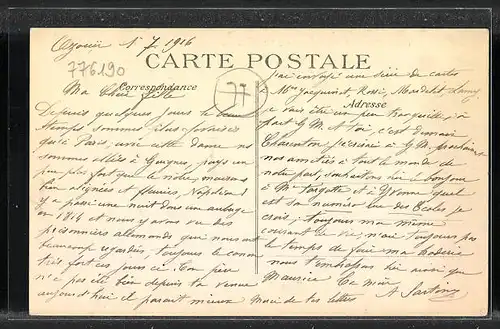 1916
CARTE POSTALE
776190
Correspondance
77
Adresse
Ma Chère
Depuis quelques jours le beau
temps sommes plus favorisés
qu'à Paris, avec cette dame nous
sommes allées à Guignes, pays un
peu plus fort que le nôtre, maisons
bien alignées et fleuries, Napoléon I
y a passé une nuit dans une auberge
en 1814 et nous y avons vu des
prisonniers allemands qui nous ont
beaucoup regardés, toujours le canon
très fort ces jours ci. Ton père
n'a pas été bien depuis ta venue
aujourd'hui il parait mieux
Merci de tes lettres
j'ai envoyé une série de cartes
à Mme Jacquinot, Rossi,
je vais être un peu tranquille, à
part G. M. et Toi, c'est demain
Charenton
nos amitiés à tout le monde de
notre part, souhaitons lui le bonjour
à Mr et Yvonne Quel
est son numéro rue des Ecoles je
crois, toujours ma même
courant de vie, n'ai toujours pas
le temps de faire ma
nous t'embrassons bien ainsi que
Maurice Ta Mère